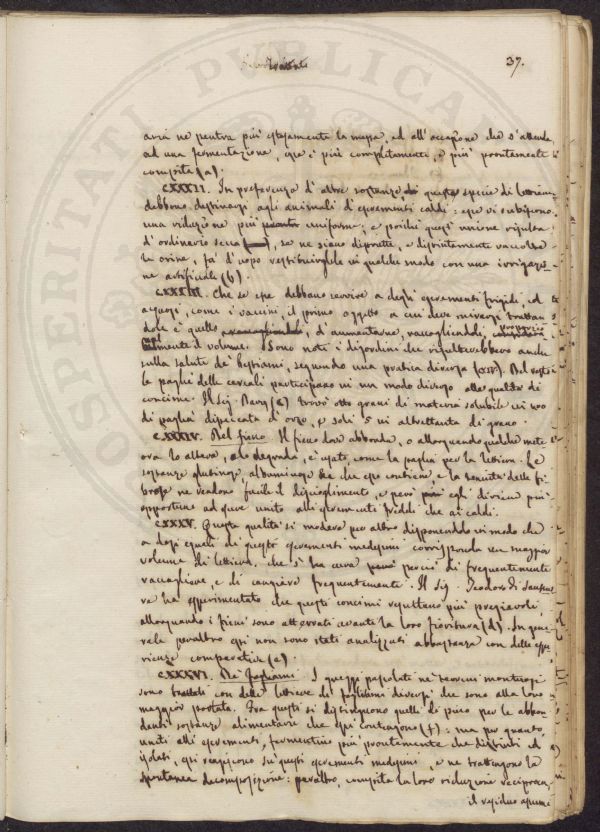 37.
avrà ne penetra più estesamente la massa, ed all'occasione che s'attende
ad una fermentazione, essa è più completamente, e più prontamente
compita (a).
CXXXII. In preferenza d'altre sostanze, queste specie di lettiera
debbono destinarsi agli animali d'escrementi caldi: esse vi subiscono
una riduzione più uniforme; e poiché quest'unione risulta
d'ordinario secca, se ne siano disperse, e distintamente raccolte
le orine, fa d'uopo restituirgliele in qualche modo con una irrigazio-
ne artificiale (b).
CXXXIII. Che se esse debbano servire a degli escrementi frigidi, ed
acquosi, come i vaccini, il primo oggetto a cui deve mirarsi trattan
dole è quello d'aumentarne, raccogliendoli,
il volume. Sono noti i disordini che risulterebbero anche
sulla salute de' bestiami, seguendo una pratica diversa. Del resto
le paglie delle cereali partecipano in un modo diverso alle qualità di
concime. Il Sig. Davy trovò otto grani di materia solubile in 400
di paglia d'orzo, e soli 5 in altrettanta di grano.
CXXXIV. Del fieno. Il fieno dove abbonda, o allorquando qualche mate
ria lo altera, o lo degrada, è usato come la paglia per la lettiera. Le
sostanze glutinose, albuminose &c che esso contiene, e la tenuità delle fi-
bre ne rendono facile il discioglimento, e però egli divien più
opportuno ad esser unito alli escrementi freddi che ai caldi.
CXXXV. Questa qualità si modera per altro disponendolo in modo che
a dosi eguali di questi escrementi medesimi corrisponda un maggior
volume di lettiera, che si ha cura perciò di frequentemente
raccogliere, e di cangiare frequentemente. Il Sig. Teodoro di Saussu
re ha esperimentato che questi concimi risultano più pregievoli,
allorquando i fieni sono atterrati avanti la loro fioritura (d). In gene
rale peraltro essi non sono stati analizzati abbastanza con delle espe
rienze comparative (e).
CXXXVI. De' fogliami. I greggi pascolati ne' terreni montuosi
sono trattati con delle lettiere di fogliami diversi che sono alla loro
maggior portata. Fra questi si distinguono quelli di pino per le abbon
danti sostanze alimentari che essi contengono (f): ma per quanto
uniti alli escrementi, fermentino più prontamente che distinti ed
isolati, essi reagiscono su questi escrementi medesimi, e ne trattengono la
spontanea decomposizione: peraltro, compita la loro riduzione reciproca,
il residuo assume